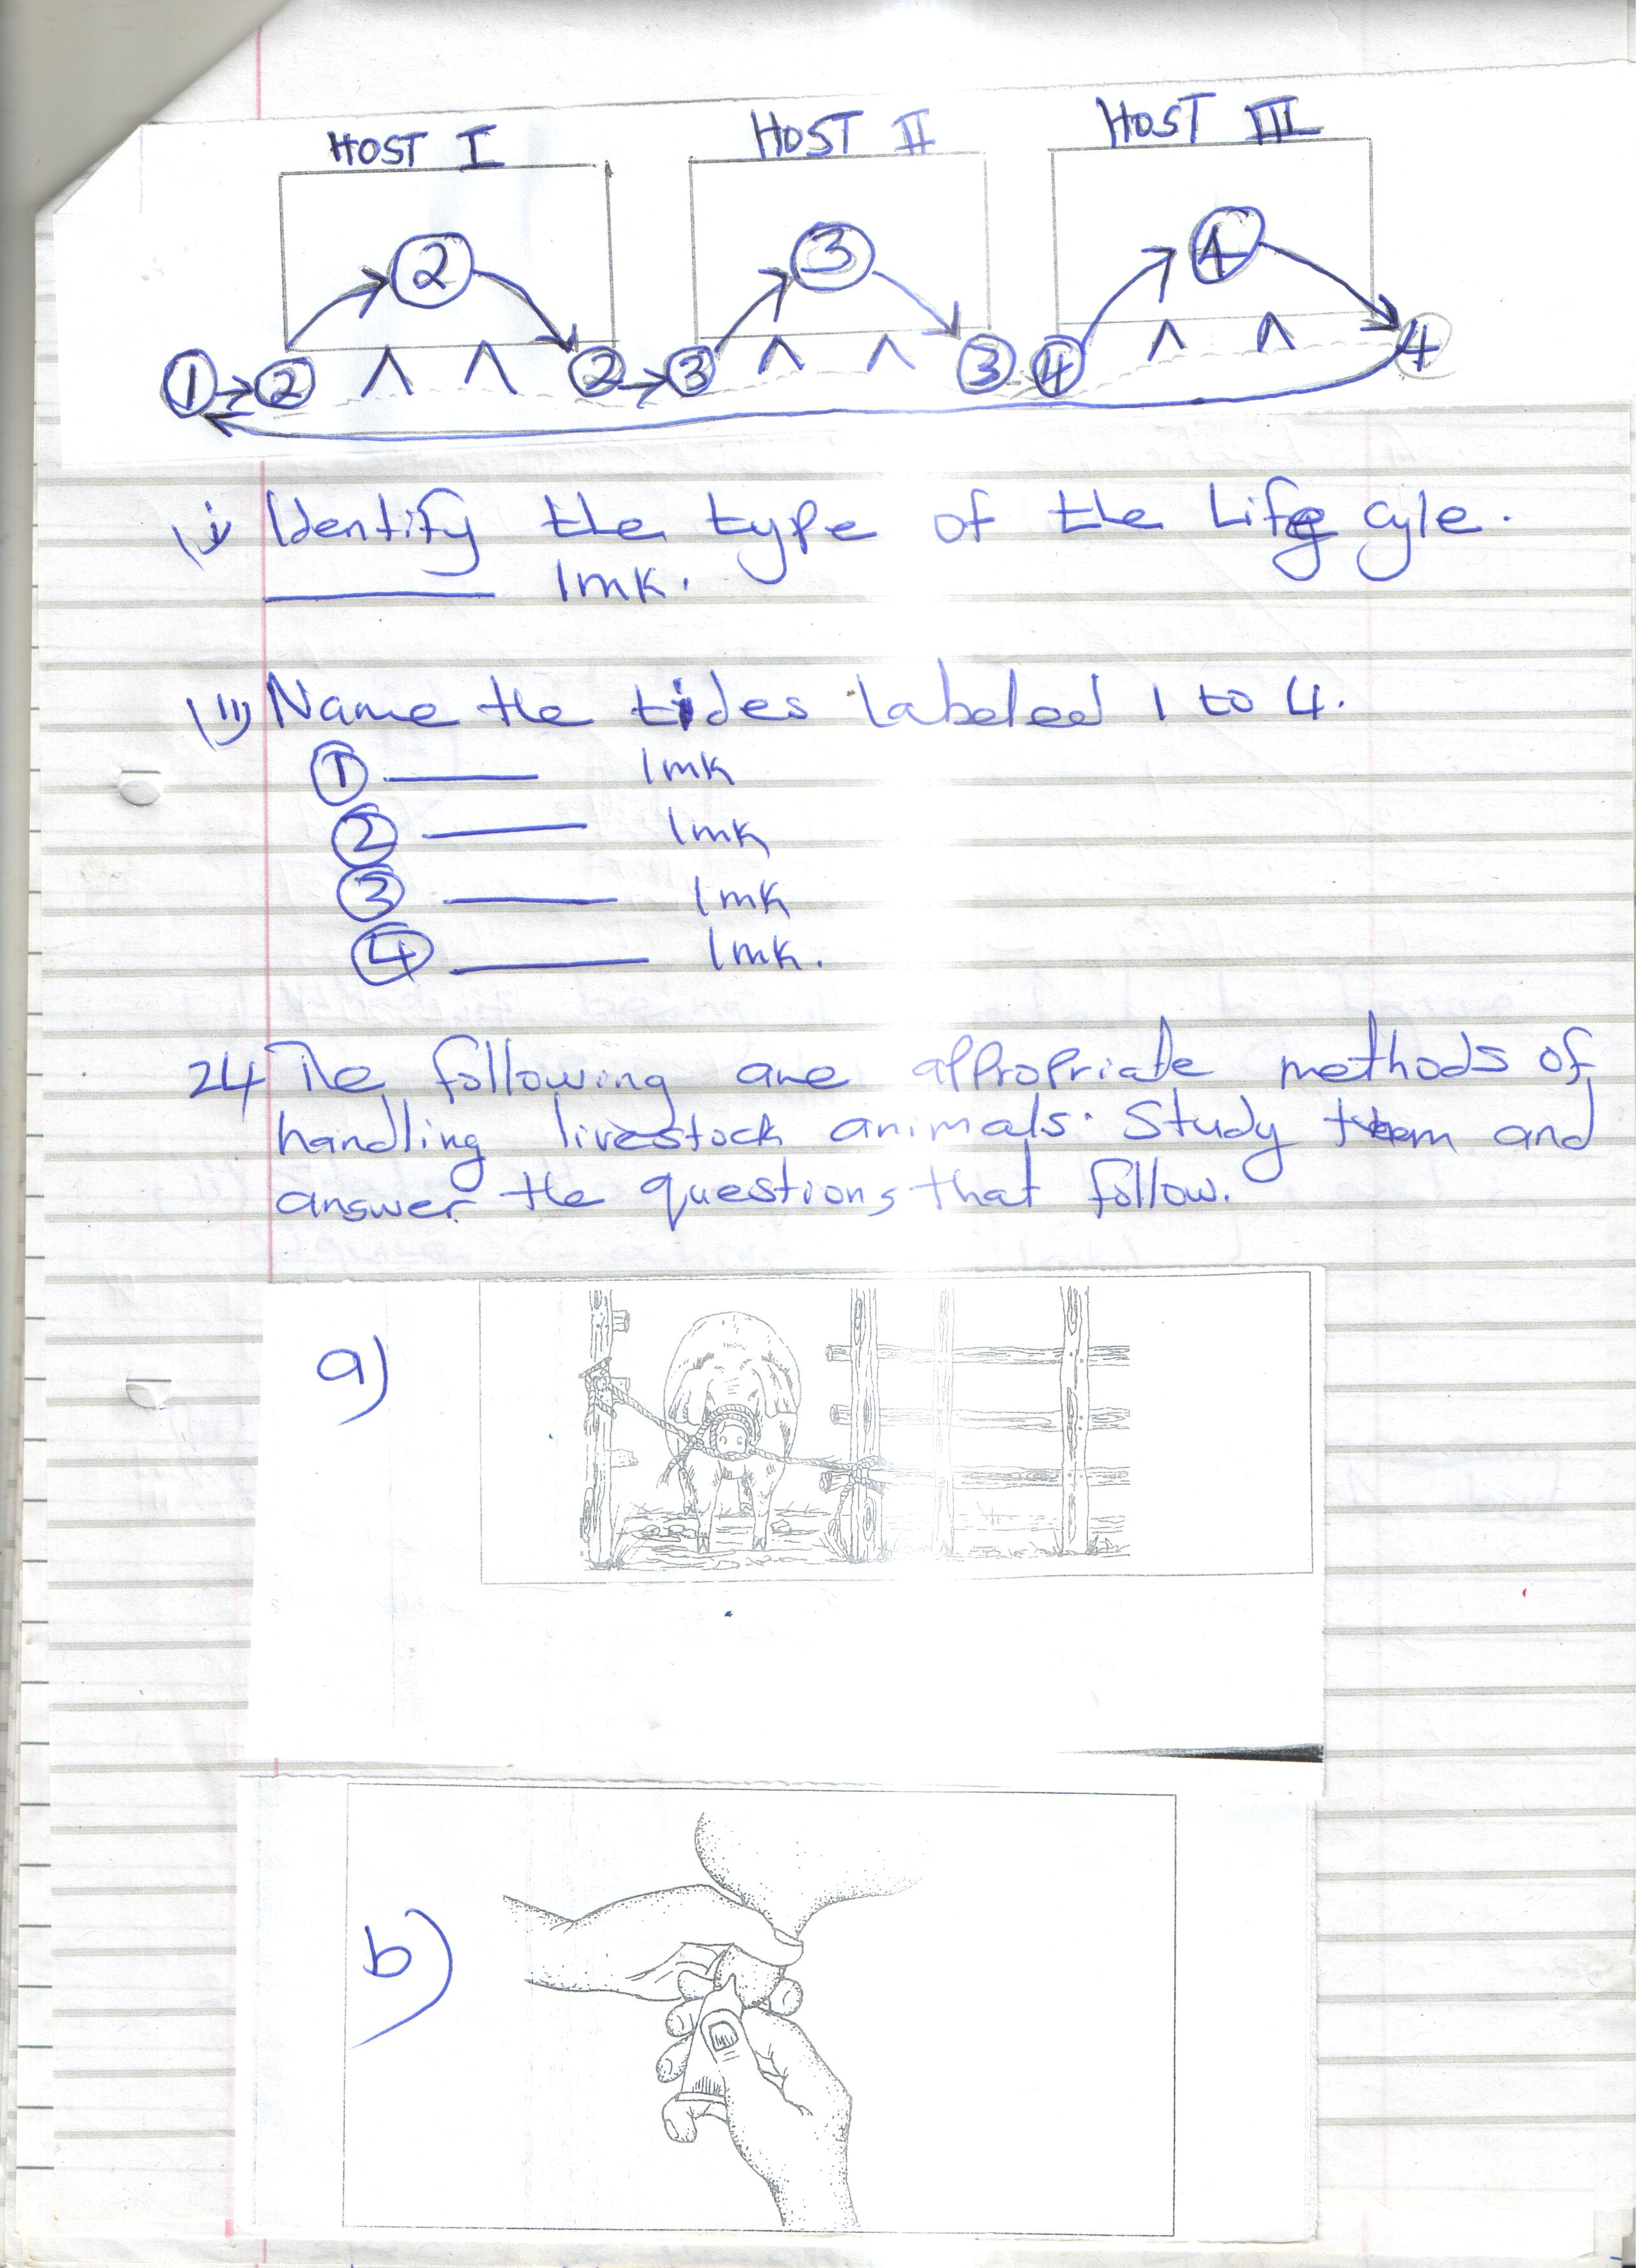 HOST I HOST II HOST III
2 3 4
1 2 2 3 3 4 4
(i) Identify the type of the Life cyle.
1mk.
(ii) Name the tides labeled 1 to 4.
1 1mk
2 1mk
3 1mk
4 1mk.
24 The following are appropriate methods of
handling livestock animals. Study them and
answer the questions that follow.
a)
b)